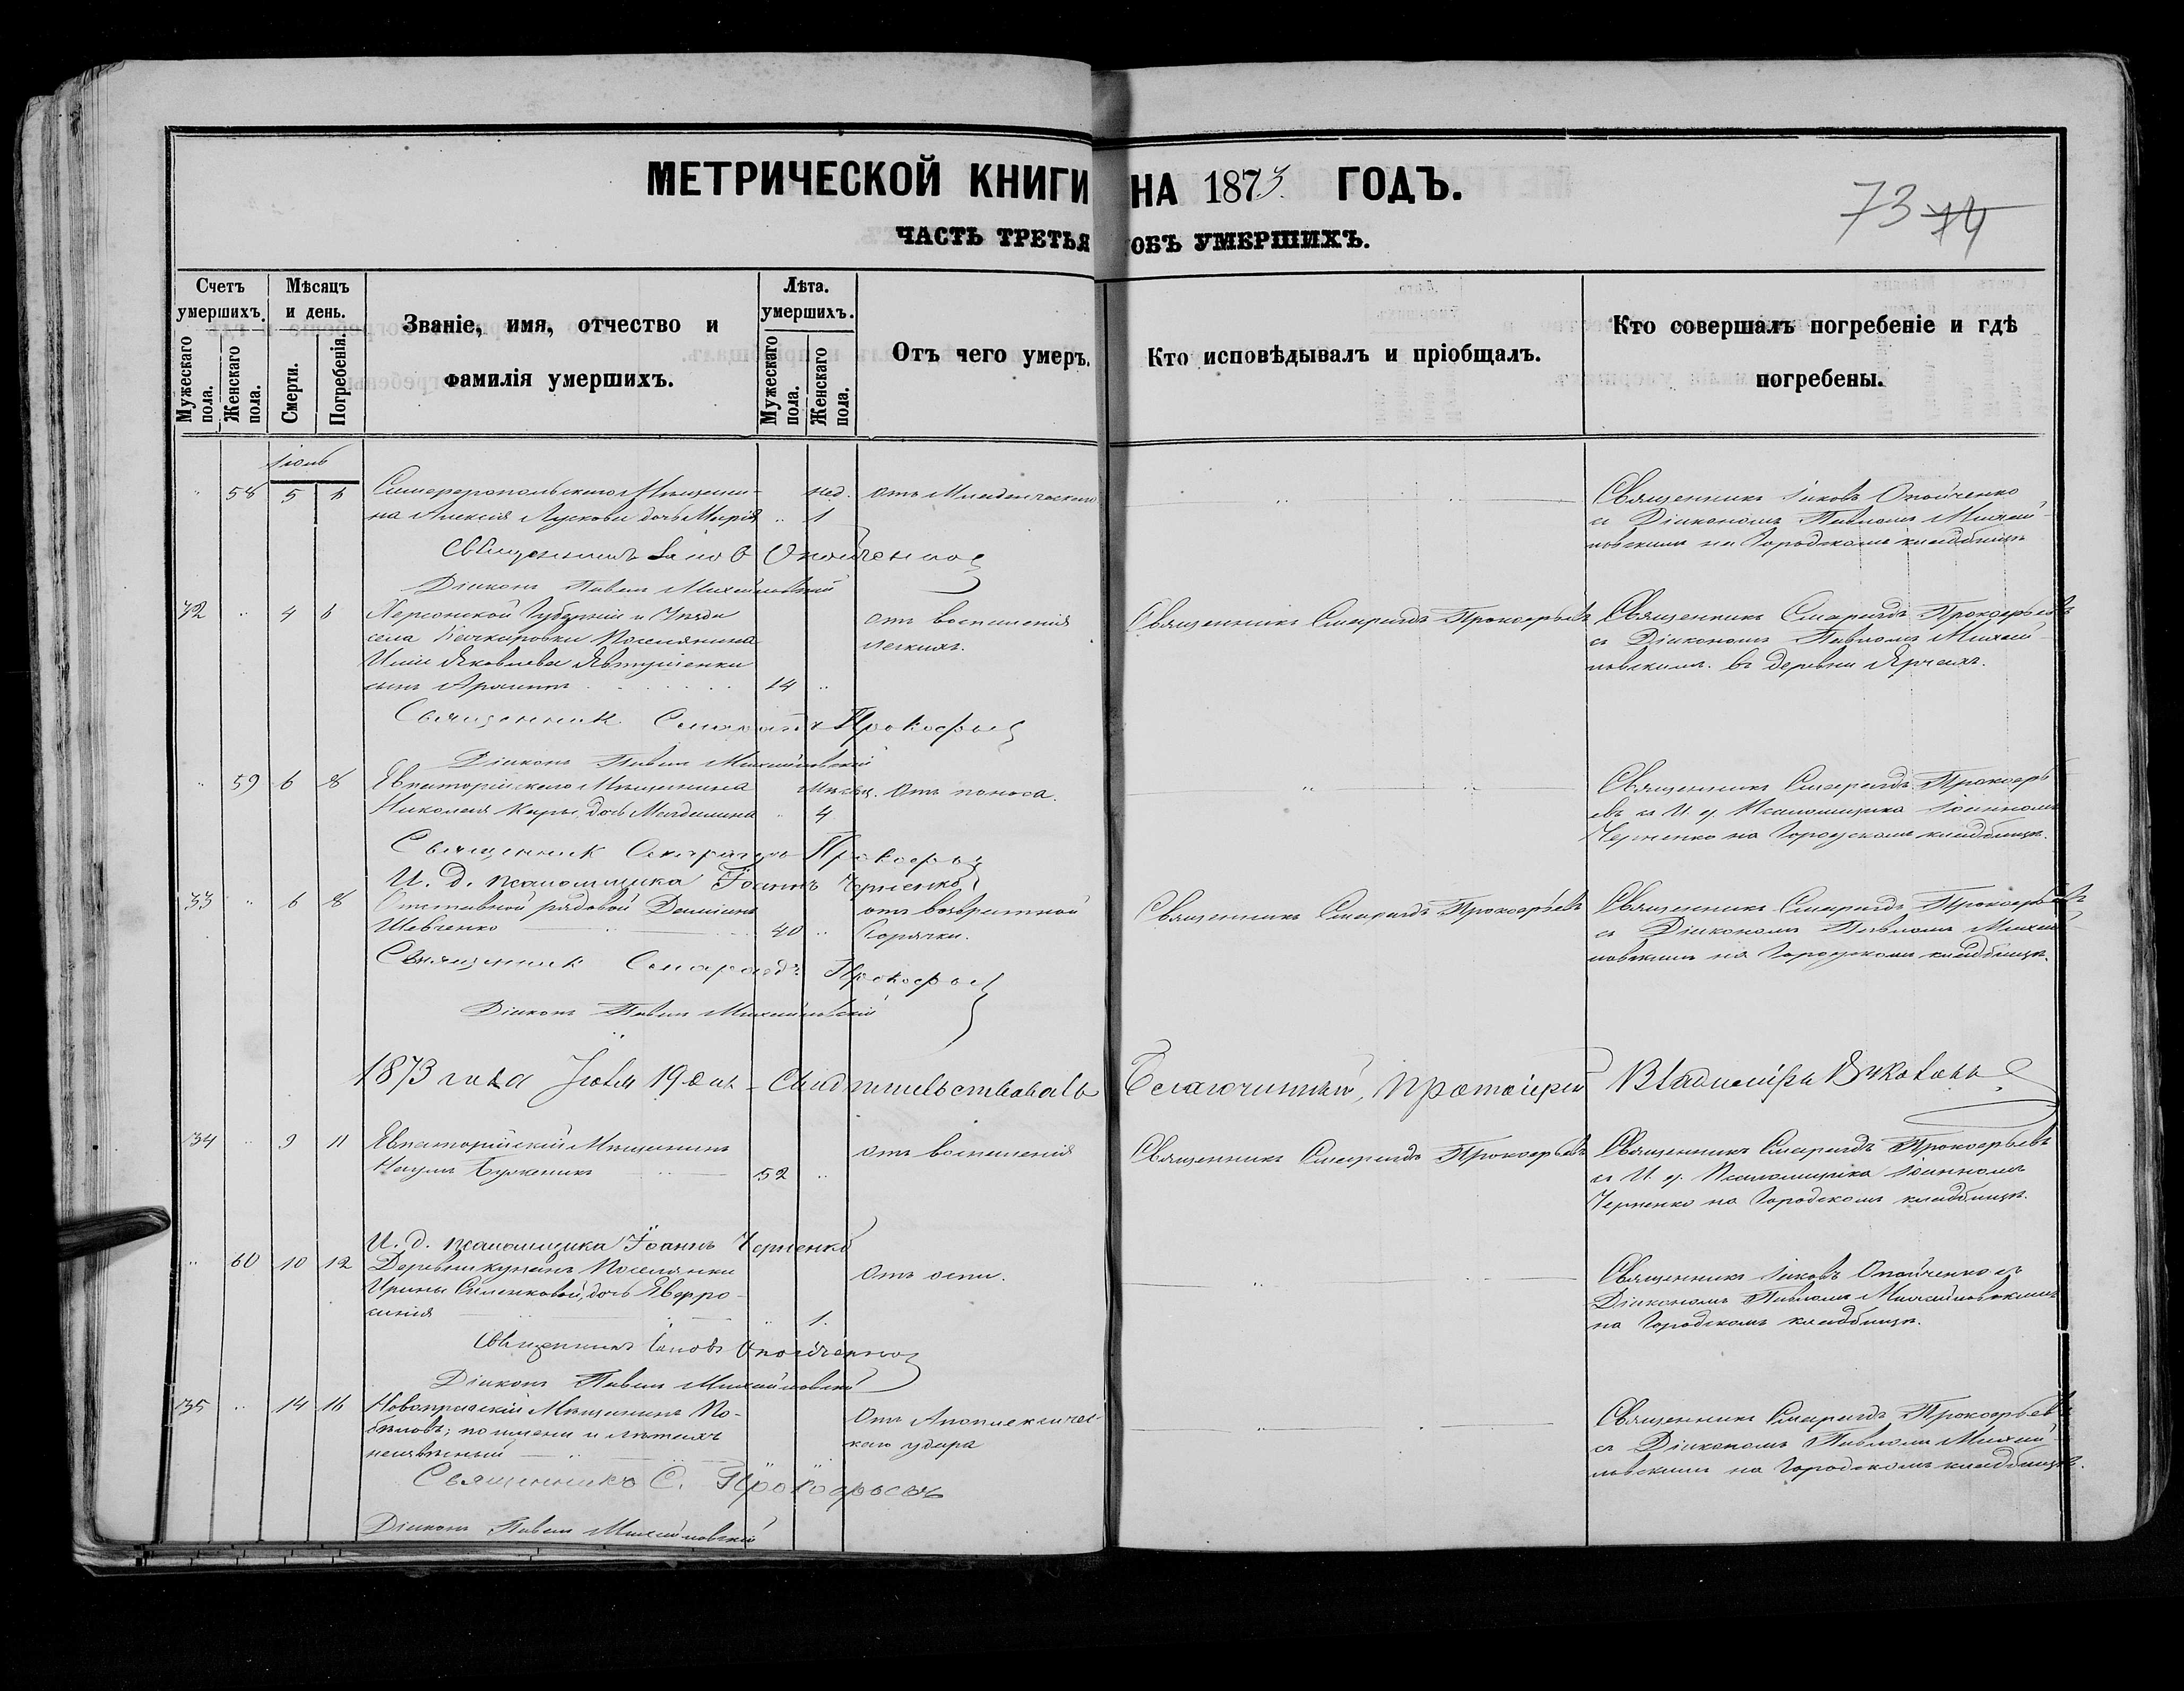 МЕТРИЧЕСКОЙ КНИГИ НА 1873 ГОДЪ.
73 74
ЧАСТЬ ТРЕТЬЯ ОБЪ УМЕРШИХЪ.
Счетъ умершихъ.
Мужескаго пола.
Женскаго пола.
Мѣсяцъ и день.
Смерти.
Погребенія.
Званіе, имя, отчество и
фамилія умершихъ.
Лѣта. умершихъ.
Мужескаго пола.
Женскаго пола.
Отъ чего умеръ.
Кто исповѣдывалъ и пріобщалъ.
Кто совершалъ погребеніе и гдѣ
погребены.
58 5 6 Симферопольскаго Мѣщани- нед. Отъ Младенческаго Священникъ Іаковъ Опойченко
на Алексія дочь Марія 1 съ Діакономъ Павломъ Михай-
ловскимъ на Городскомъ кладбищѣ
Священникъ Іаковъ Опойченко
Діаконъ Павелъ Михайловскій
32 4 6 Херсонской Губерніи и Уѣзда отъ воспаленія Священникъ Смарагдъ Прокофьевъ Священникъ Смарагдъ Прокофьевъ
села Поселянина легкихъ. съ Діакономъ Павломъ Михай-
Яковлева Явтушенки ловскимъ въ деревни
сынъ 14
Священникъ Смарагдъ Прокофьев
Діаконъ Павелъ Михайловскій
59 6 8 Евпаторійскаго Мѣщанина Мѣсяц. Отъ поноса. Священникъ Смарагдъ Прокофь
Николая дочь Магдалина 4 евъ съ И. д. Псаломщика Іоанномъ
Черненко на Городскомъ кладбищѣ.
Священник Смарагдъ Прокофьев
И. д. псаломщика Іоаннъ Черненко
33 6 8 Отставной рядовой Даміанъ отъ возвратной Священникъ Смарагдъ Прокофьевъ Священникъ Смарагдъ Прокофьевъ
Шевченко 40 Горячки. съ Діакономъ Павломъ Михай
ловскимъ на Городскомъ кладбищѣ.
Священник Смарагдъ Прокофьев
Діаконъ Павелъ Михайловскій
1873 года 19 дня Свидѣтельствовалъ Благочинный, Протоіерей Владиміръ
34 9 11 Евпаторійскій Мѣщанинъ отъ воспаленія Священникъ Смарагдъ Прокофьевъ Священникъ Смарагдъ Прокофьевъ
Наумъ 52 съ И. д. Псаломщика Іоанномъ
Черненко на Городскомъ кладбищѣ.
И. д. псаломщика Іоаннъ Черненко
60 10 12 Деревни Поселянки Отъ оспы. Священникъ Іаковъ Опойченко съ
Ирины дочь Евфро- Діакономъ Павломъ Михайловскимъ
синія 1. на Городскомъ кладбищѣ.
Священникъ Іаковъ Опойченко
Діаконъ Павелъ Михайловскій
35 14 16 Мѣщанинъ По- Отъ Апоплексичес- Священникъ Смарагдъ Прокофьевъ
по имени и лѣтахъ каго удара съ Діакономъ Павломъ Михай-
ловскимъ на Городскомъ кладбищѣ.
Священникъ С. Прокофьевъ
Діаконъ Павелъ Михайловскій